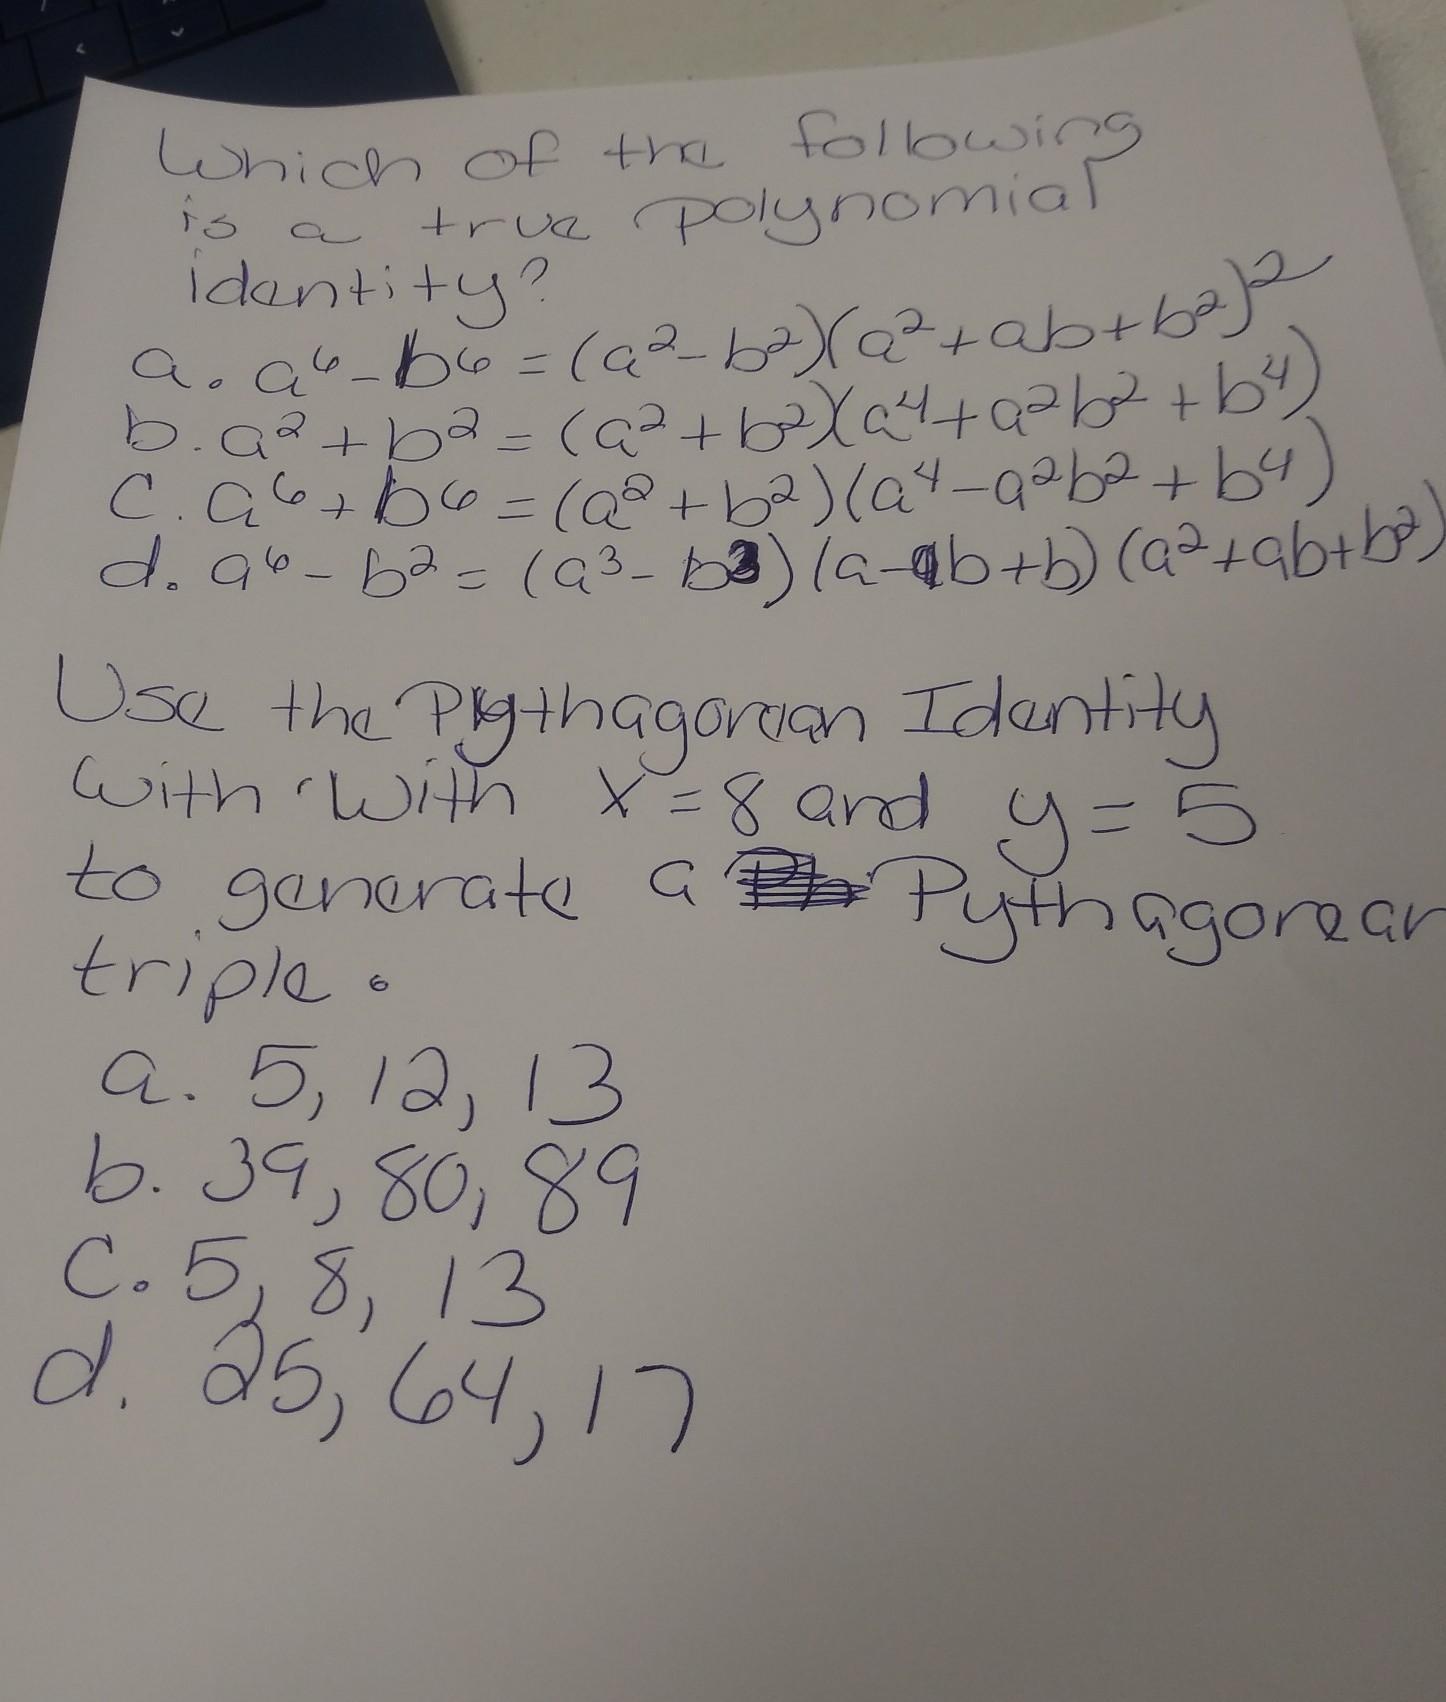 Which of the following
is a true polynomial
identity?
a. a⁶ - b⁶ = (a² - b²)(a² + ab + b²)²
b. a² + b² = (a² + b²)(a⁴ + a²b² + b⁴)
c. a⁶ + b⁶ = (a² + b²)(a⁴ - a²b² + b⁴)
d. a⁶ - b² = (a³ - b3)(a - ab + b)(a² + ab + b²)
Use the Pythagorean Identity
with with x = 8 and y = 5
to generate a Pythagorean
triple.
a. 5, 12, 13
b. 39, 80, 89
C. 5, 8, 13
d. 25, 64, 17